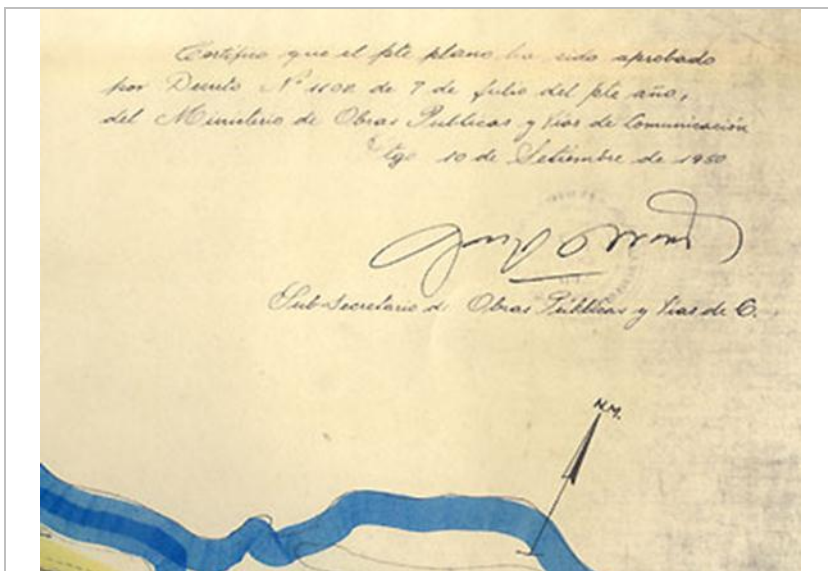 Certifico que el pte plano ha sido aprobado
por Decreto Nº de 7 de julio del pte año,
del Ministerio de Obras Publicas y Vias de Comunicación
Stgo 10 de Setiembre de 1950
Sub-Secretario de Obras Públicas y Vias de C.
N.M.